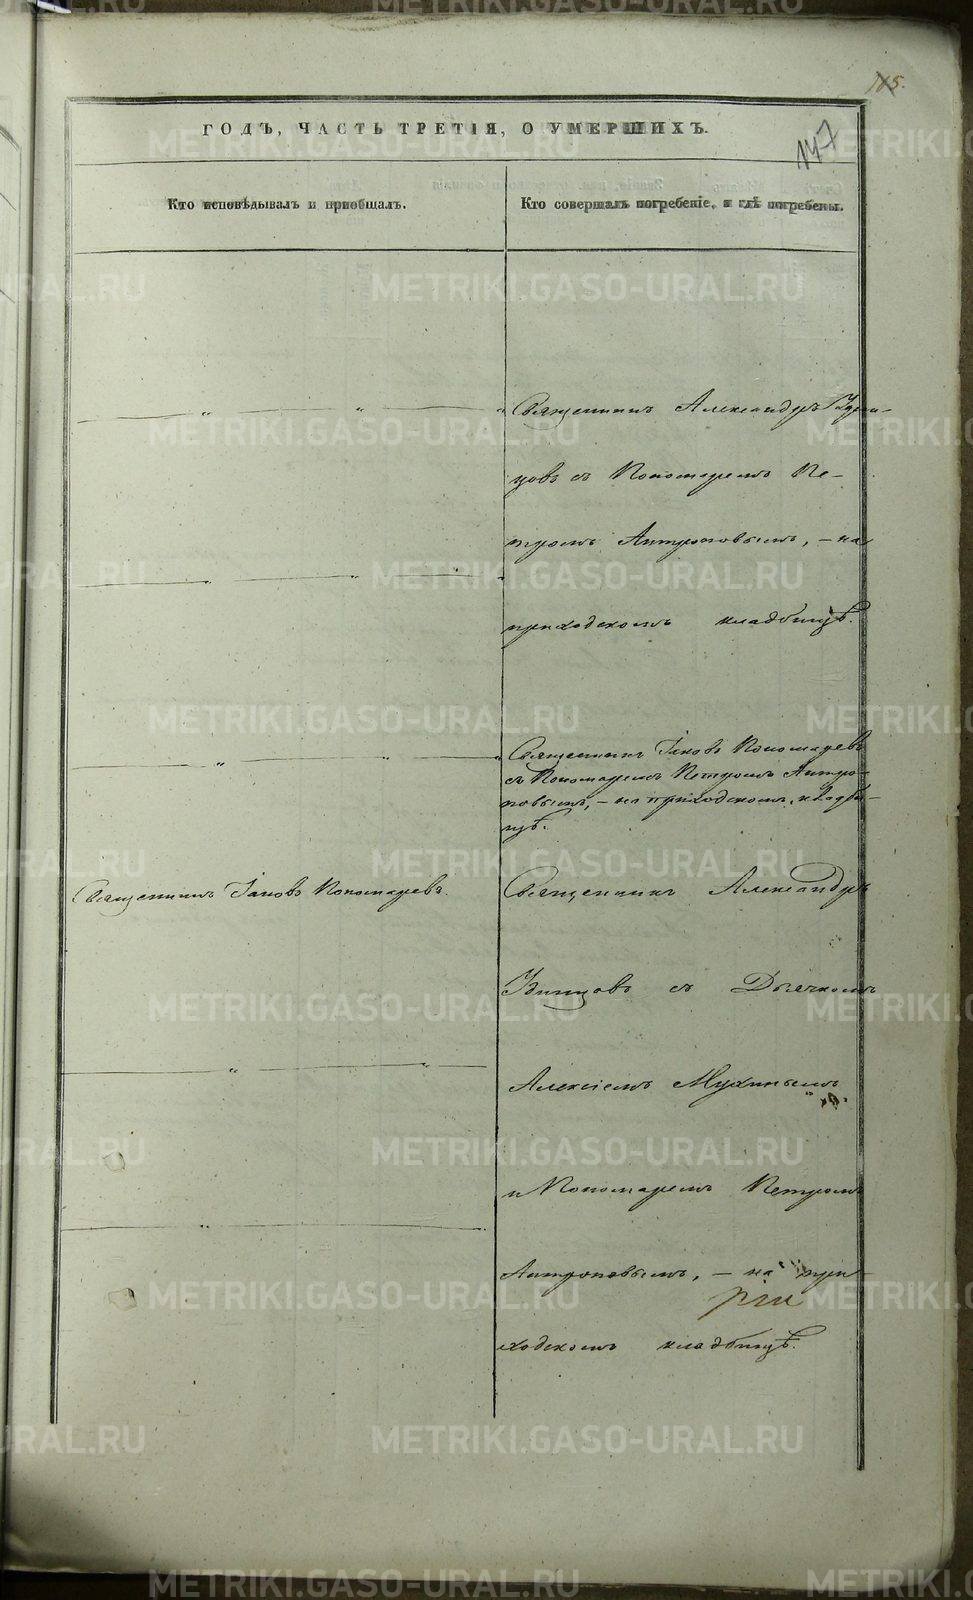 185.
ГОДЪ, ЧАСТЬ ТРЕТІЯ, О УМЕРШИХЪ.
147
Кто исповѣдывалъ и приобщалъ.
Кто совершалъ погребеніе, и гдѣ погребены.
Священникъ Александръ Удин-
цовъ съ Пономаремъ Пе-
тромъ Антроповымъ, – на
приходскомъ кладбищѣ.
Священникъ Іаковъ Пономаревъ
съ Пономаремъ Петромъ Антро-
повымъ, – на приходскомъ кладби-
щѣ.
Священникъ Іаковъ Пономаревъ.
Священникъ Александръ
Удинцовъ съ Дьячкомъ
Алексіемъ Мухинымъ
и Пономаремъ Петромъ
Антроповымъ, – на при-
рпи
ходскомъ кладбищѣ.
METRIKI.GASO-URAL.RU